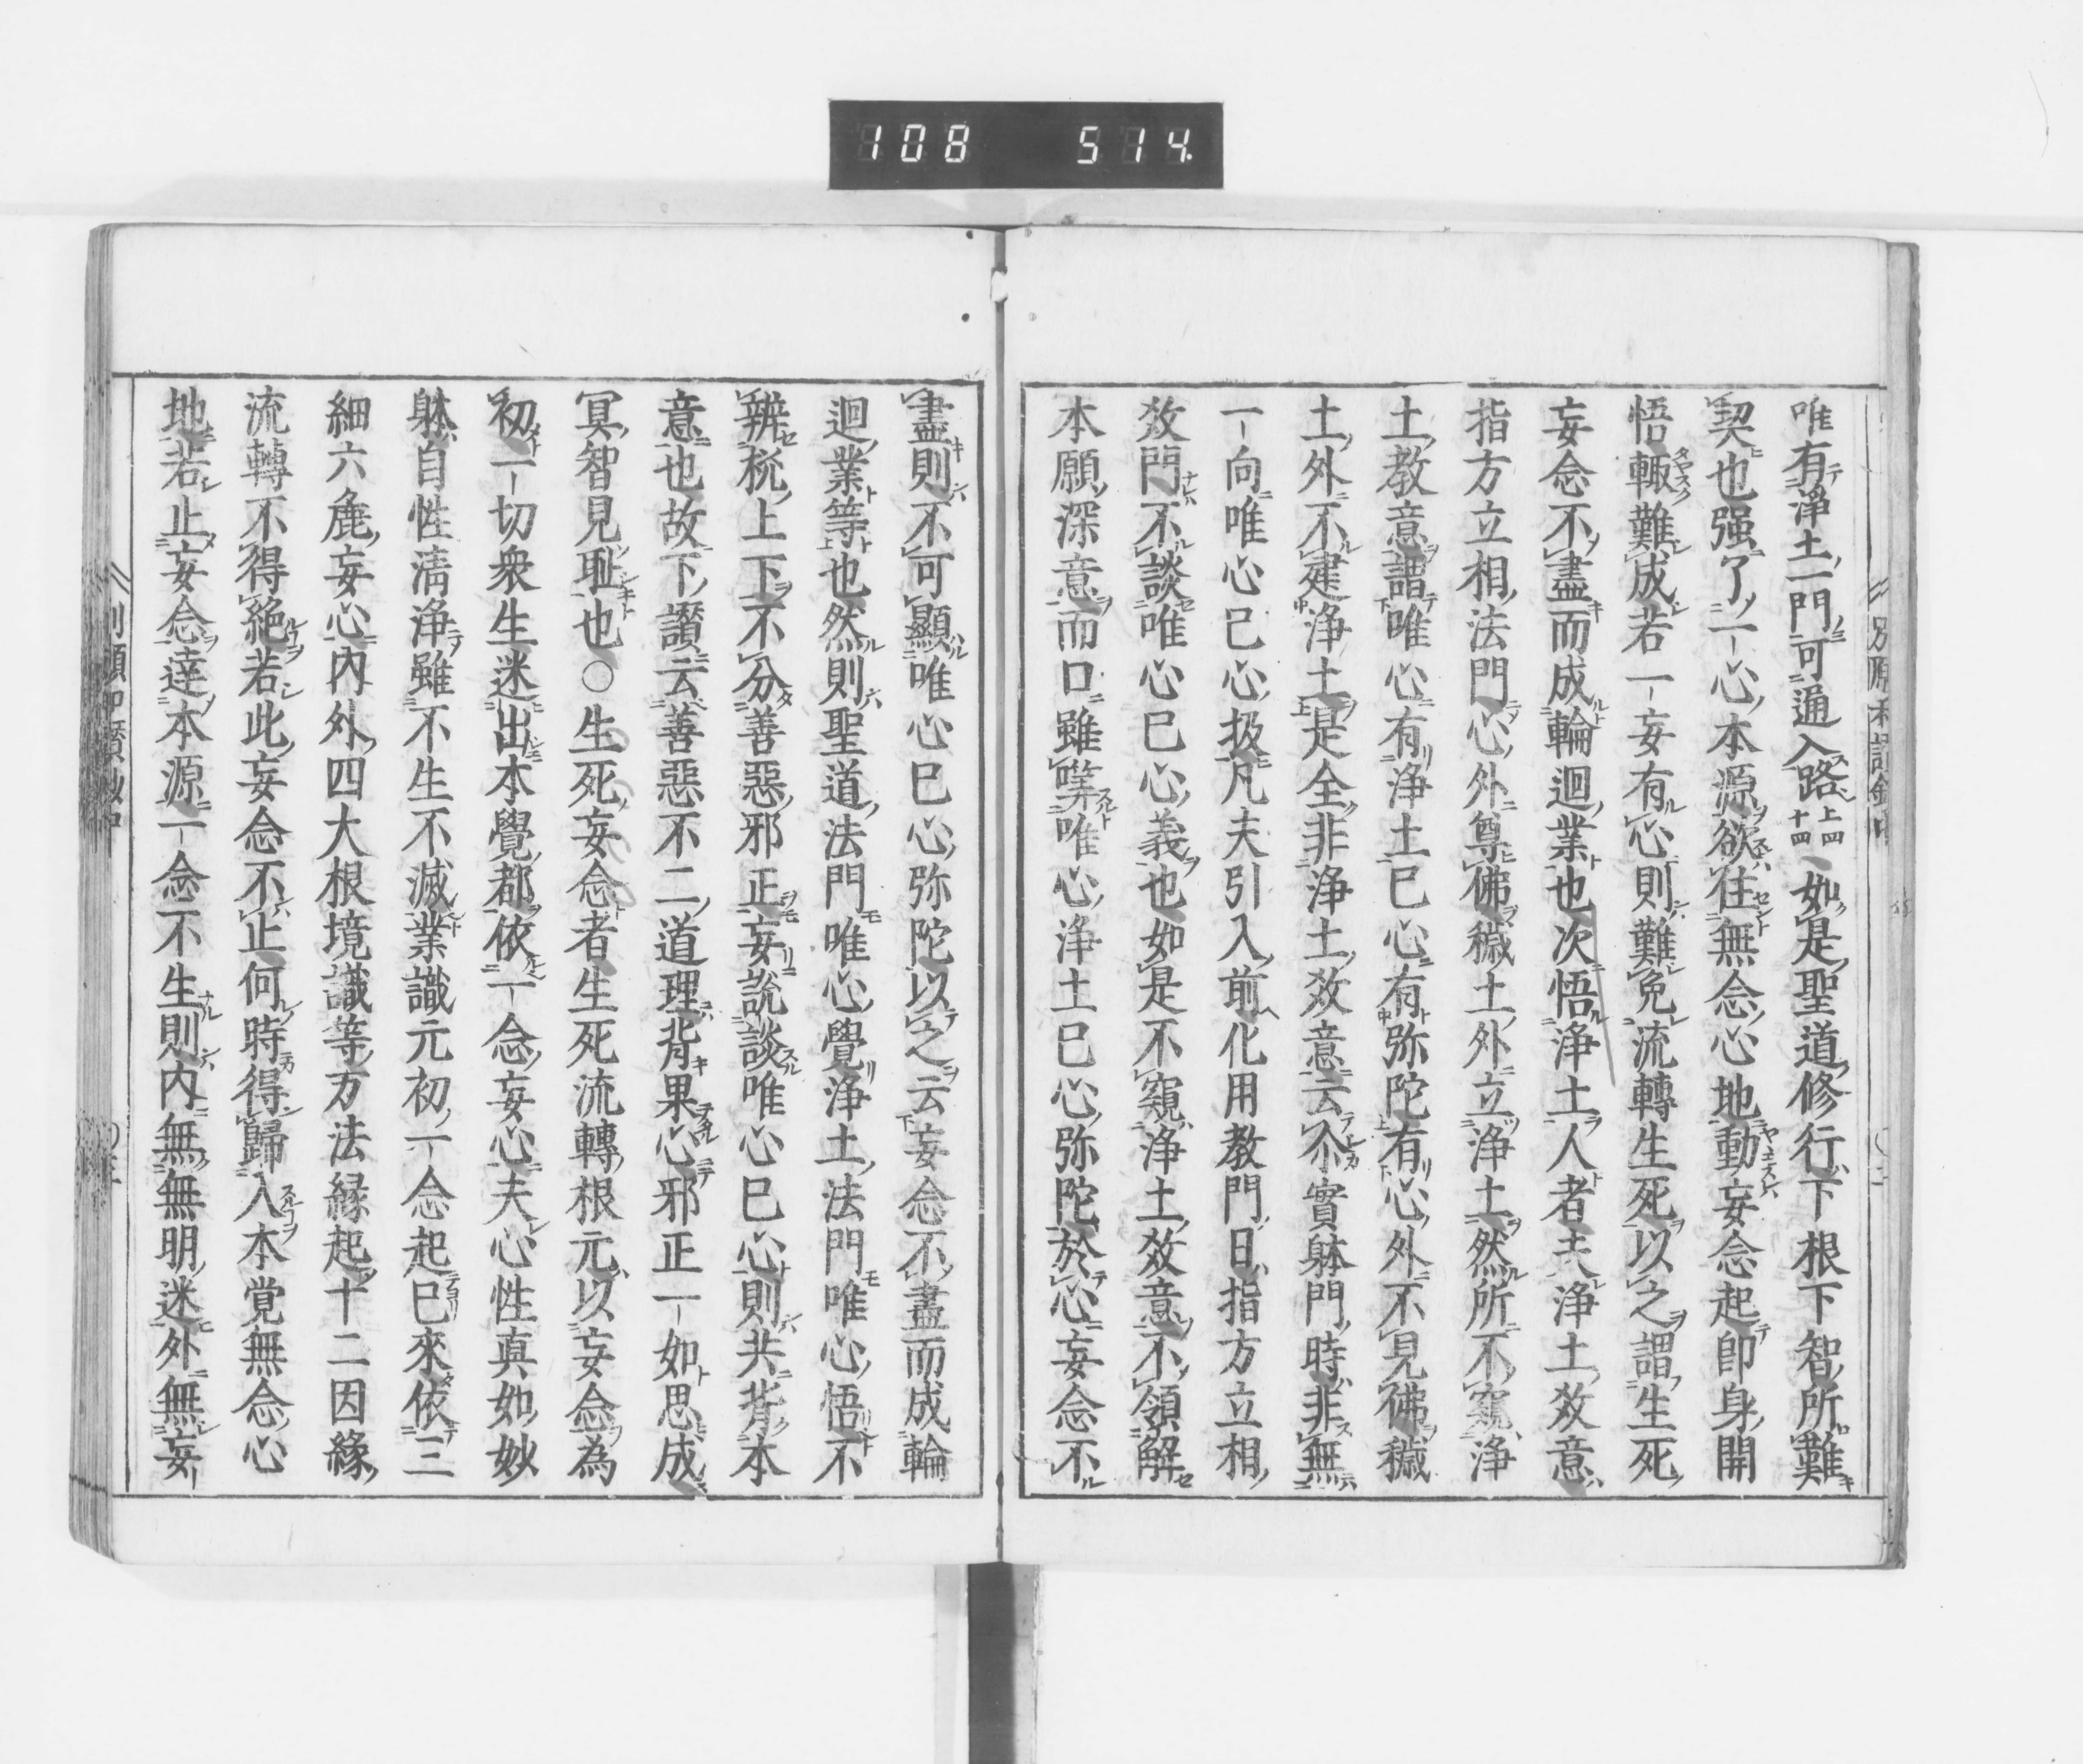 108 514.
唯有淨土一門可通入路上四十四如是聖道修行下根下智所難
契也强了一心本源欲住無念心地動妄念起即身開
悟輙難成若一妄有心則難免流轉生死以之謂生死
妄念不盡而成輪迴業也次悟浄土人者夫浄土教意
指方立相法門心外尊佛穢土外立浄土然所不窺浄
土教意謂唯心有浄土已心有弥陀有心外不見佛穢
土外不建浄土是全非浄土教意云尒實躰門時非無
一向唯心己心扱凡夫引入前化用教門日指方立相
教門不談唯心已心義也如是不窺浄土教意不領解
本願深意而口雖嘆唯心浄土已心弥陀於心妄念不
盡則不可顯唯心已心弥陀以之云妄念不盡而成輪
迴業等也然則聖道法門唯心覺浄土法門唯心悟不
辨梲上下不分善惡邪正妄説談唯心已心則共背本
意也故下讃云善惡不二道理背果心邪正一如思成
冥智見耻也○生死妄念者生死流轉根元以妄念為
初一切衆生迷出本覺都依一念妄心夫心性真如妙
躰自性清浄雖不生不滅業識元初一念起已來依三
細六麁妄心内外四大根境識等万法縁起十二因縁
流轉不得絶若此妄念不止何時得歸入本覚無念心
地若止妄念達本源一念不生則内無無明迷外無妄